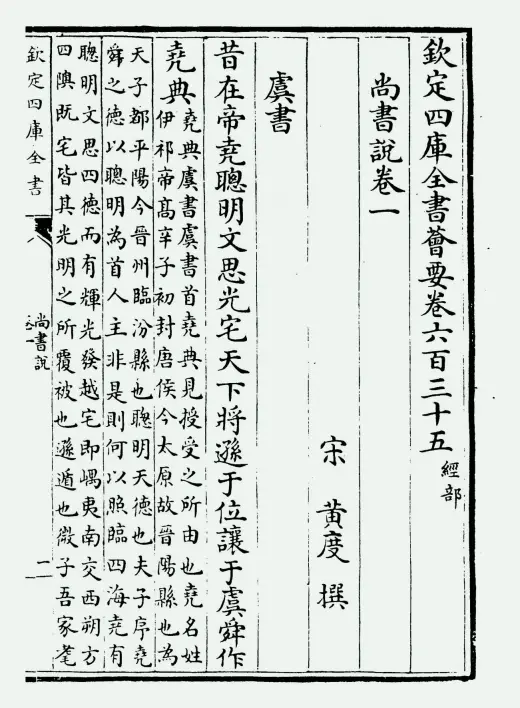 欽定四庫全書薈要卷六百三十五 經部
尚書說卷一
宋 黃度 撰
虞書
昔在帝堯聰明文思光宅天下將遜于位讓于虞舜作
堯典
堯典虞書虞書首堯典見授受之所由也堯名姓
伊祁帝高辛子初封唐侯今太原故晉陽縣也為
天子都平陽今晉州臨汾縣也聰明天德也夫子序堯
舜之德以聰明為首人主非是則何以照臨四海堯有
聰明文思四德而有輝光發越宅即嵎夷南交西朔方
四隩既宅皆其光明之所覆被也遜遁也微子吾家耄
欽定四庫全書
尚書說
卷一
一